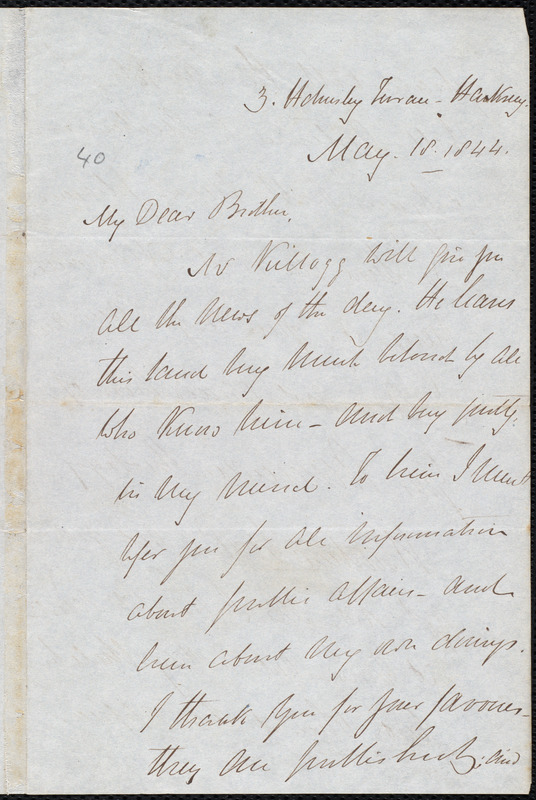 3. Hornsby Terrace - Hackney.
May. 18. 1844.
40
My Dear Brother,
Mr Kellogg will give you
all the news of the day. He leaves
this land very much beloved by all
who know him - and very justly,
in my mind. To him I must
refer you for all information
about public affairs - and
even about my own doings.
I thank you for your favours -
they are published; and